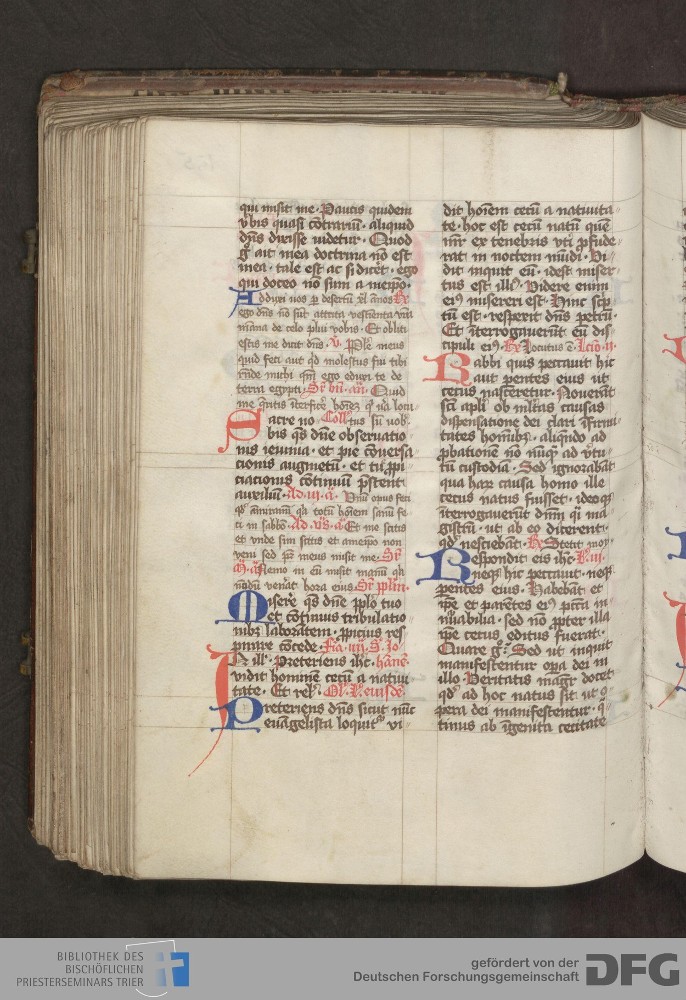 qui misit me. Paucis quidem
v̄bis quasi cōtrariū. aliquid
dn̄s dixisse videtur. Quod
g̊ ait mea doctrina nō est
mea. tale est ac si dicēt. ego
qui doceo nō sum a meip̄o.
Adduxi vos p̲ desertū xl ān̄os R̸
ego dn̄s nō sūt attrita vestīenta vr̄a
māna de celo plui vobis. Et obliti
estis me dicit dn̄s. v̄. Pp̄le meus
quid feci aut qd̛ molestus fui tibi
r̄nde michi qm̄ ego eduxi te de
terra egypti. Sr̄ bn̄. an̄. Quid
me q̄ritis īterficē hoīez q̛ v̄a locu
Sacre no Coll̄ tus sū vob̛.
bis qs̄ dn̄e obseruatio
nis ieiunia. et pie cōuersa
cionis augmētū. et tu p̲pi
ciacionis cōtinuū p̄stent
auxiliū. Ad. m̄. a̅. Vnū opus feci
et āmiramī. q̛a totū hoīem sanū fe
ci in sabbō. Ad. vs̄. a̅ Et me scitis
et vnde sim scitis et ameip̄o non
veni sed p̄r meus misit me. Sr̄
a̅. Nemo in eū misit manū q̛a
nōdū venāt hora eius. Sr̄ pp̄lm̄.
Miserē qs̄ dn̄e pp̄lo tuo
et cōtinuis tribulatio
nibz laborātem. p̲picius res
pirare cōcede. Fīa. iiij. S. Jo.
In ill̄ Preteriens ih̄c. hānē.
vidit hominem cecū a natiui
tate. Et rel̄. Om̄. v. eiusdē
Preteriens dn̄s sicut nūc
euāgelista loquitᷣ vi
dit hoīem cecū a natiuita
te. hoc est cecū natū quē
nūr ex tenebris vti p̲fude
rat in noctem mūdi. Vi
dit inquit eū. idest miser
tus est ill̛. Videre enim
ei̛ misereri est. Hinc sc̄p
tū est. respexit dn̄s petrū.
Et īterrogauerūt eū dis
cipuli ei̛. R̸ Locutus ē Lc̄io. ij.
Rabbi quis peccauit hic
aut p̲entes eius ut
cecus nasceretur. Nouerāt
sc̄i apl̄i ob ml̄tas causas
dispensatione dei dari īfirmi
tates homibz. aliquādo ad
p̲bationē nō nūq̛ ad v̄tu
tū custodiā. Sed ignorabāt
qua harz causa homo ille
cecus natus fuisset. ideoqz
īterrogauerūt dn̄m q̛i ma
gistrū. ut ab eo dicerent.
qd̛ nesciebāt. R̸ Stetit moy
Respondit eis ih̄c. R. iij.
neqz hic peccauit. neqz
p̲entes eius. Habebāt et
ip̄e et parētes ei̛ pcc̄a in
nūabilia. sed nō pp̄ter illa
ip̄e cecus editus fuerat.
Quare g̊. Sed ut inquit
manifestentur op̲a dei in
illo. Veritatis magr̄ docet
qd̛ ad hoc natus sit ut o
pera dei manifestentur. q̛
tinus ab īgenita cecitate
BIBLIOTHEK DES
BISCHÖFLICHEN
PRIESTERSEMINARS TRIER
gefördert von der
Deutschen Forschungsgemeinschaft
DFG